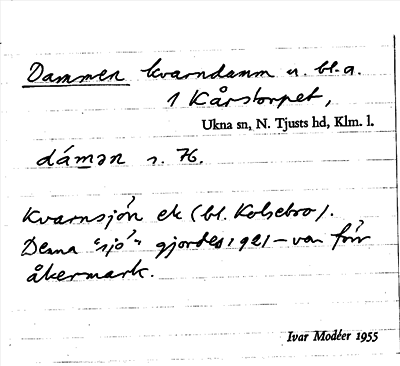 Dammen kvarndamm u. bl. a.
1 Kårstorpet,
Ukna sn, N. Tjusts hd, Klm. l.
dámən s. 76.
Kvarnsjön ek (bl. Kolsebro).
Denna "sjö" gjordes 1921 – var förr
åkermark.
Ivar Modéer 1955